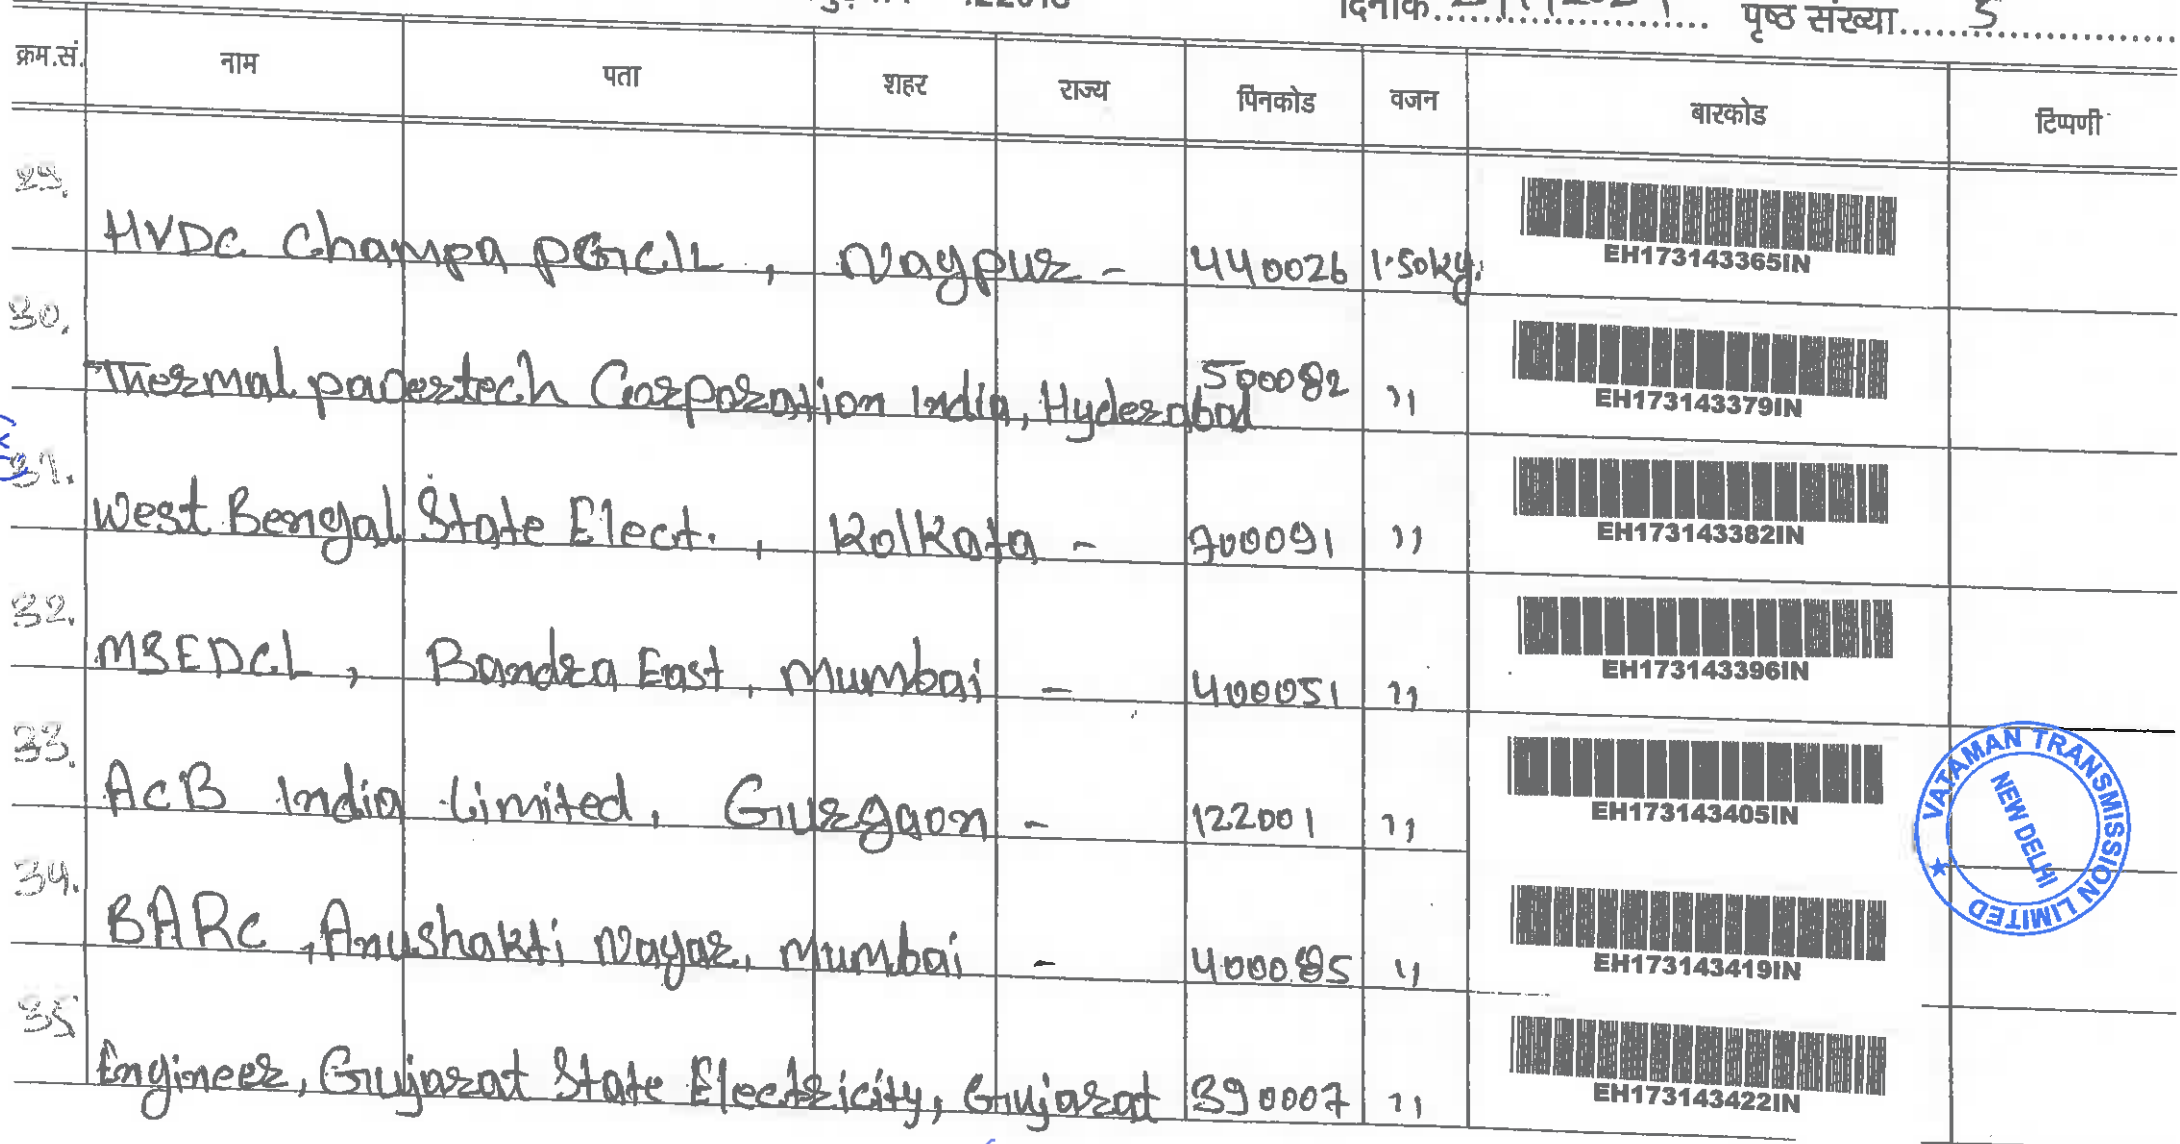 पृष्ठ संख्या.......5
क्रम.सं. नाम पता शहर राज्य पिनकोड वजन बारकोड टिप्पणी
29. HVDC Champa PGCIL, Nagpur - 440026 1.50kg. EH173143365IN
30. Thermal powertech Corporation India, Hyderabad 500082 " EH173143379IN
31. West Bengal State Elect., Kolkata - 700091 " EH173143382IN
32. MSEDCL, Bandra East, Mumbai - 400051 " EH173143396IN
33. ACB India Limited, Gurgaon - 122001 " EH173143405IN
34. BARC, Anushakti Nagar, Mumbai - 400085 " EH173143419IN
35 Engineer, Gujarat State Electricity, Gujarat 390007 " EH173143422IN
VATAMAN TRANSMISSION LIMITED
NEW DELHI